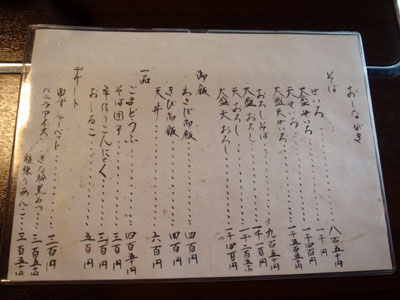 おしながき
そば
せいろ・・・・・八百五十円
大盛せいろ・・・・・一千円
天せいろ・・・・・一千四百円
大盛天せいろ・・・・・一千五百五十円
おろしそば・・・・・九百五十円
大盛おろし・・・・・一千一百円
天おろし・・・・・一千二百五十円
大盛天おろし・・・・・一千四百円
御飯
わさび御飯・・・・・四百円
きび御飯・・・・・四百円
天丼・・・・・六百円
一品
ごまどうふ・・・・・四百五十円
そば団子・・・・・三百円
手作りこんにゃく・・・・・三百円
おしるこ・・・・・五百円
デザート
ゆずシャーベット・・・・・二百円
バニラアイス・・・きな粉黒みつ・・・二百五十円
粒練りあんこ・・・三百五十円